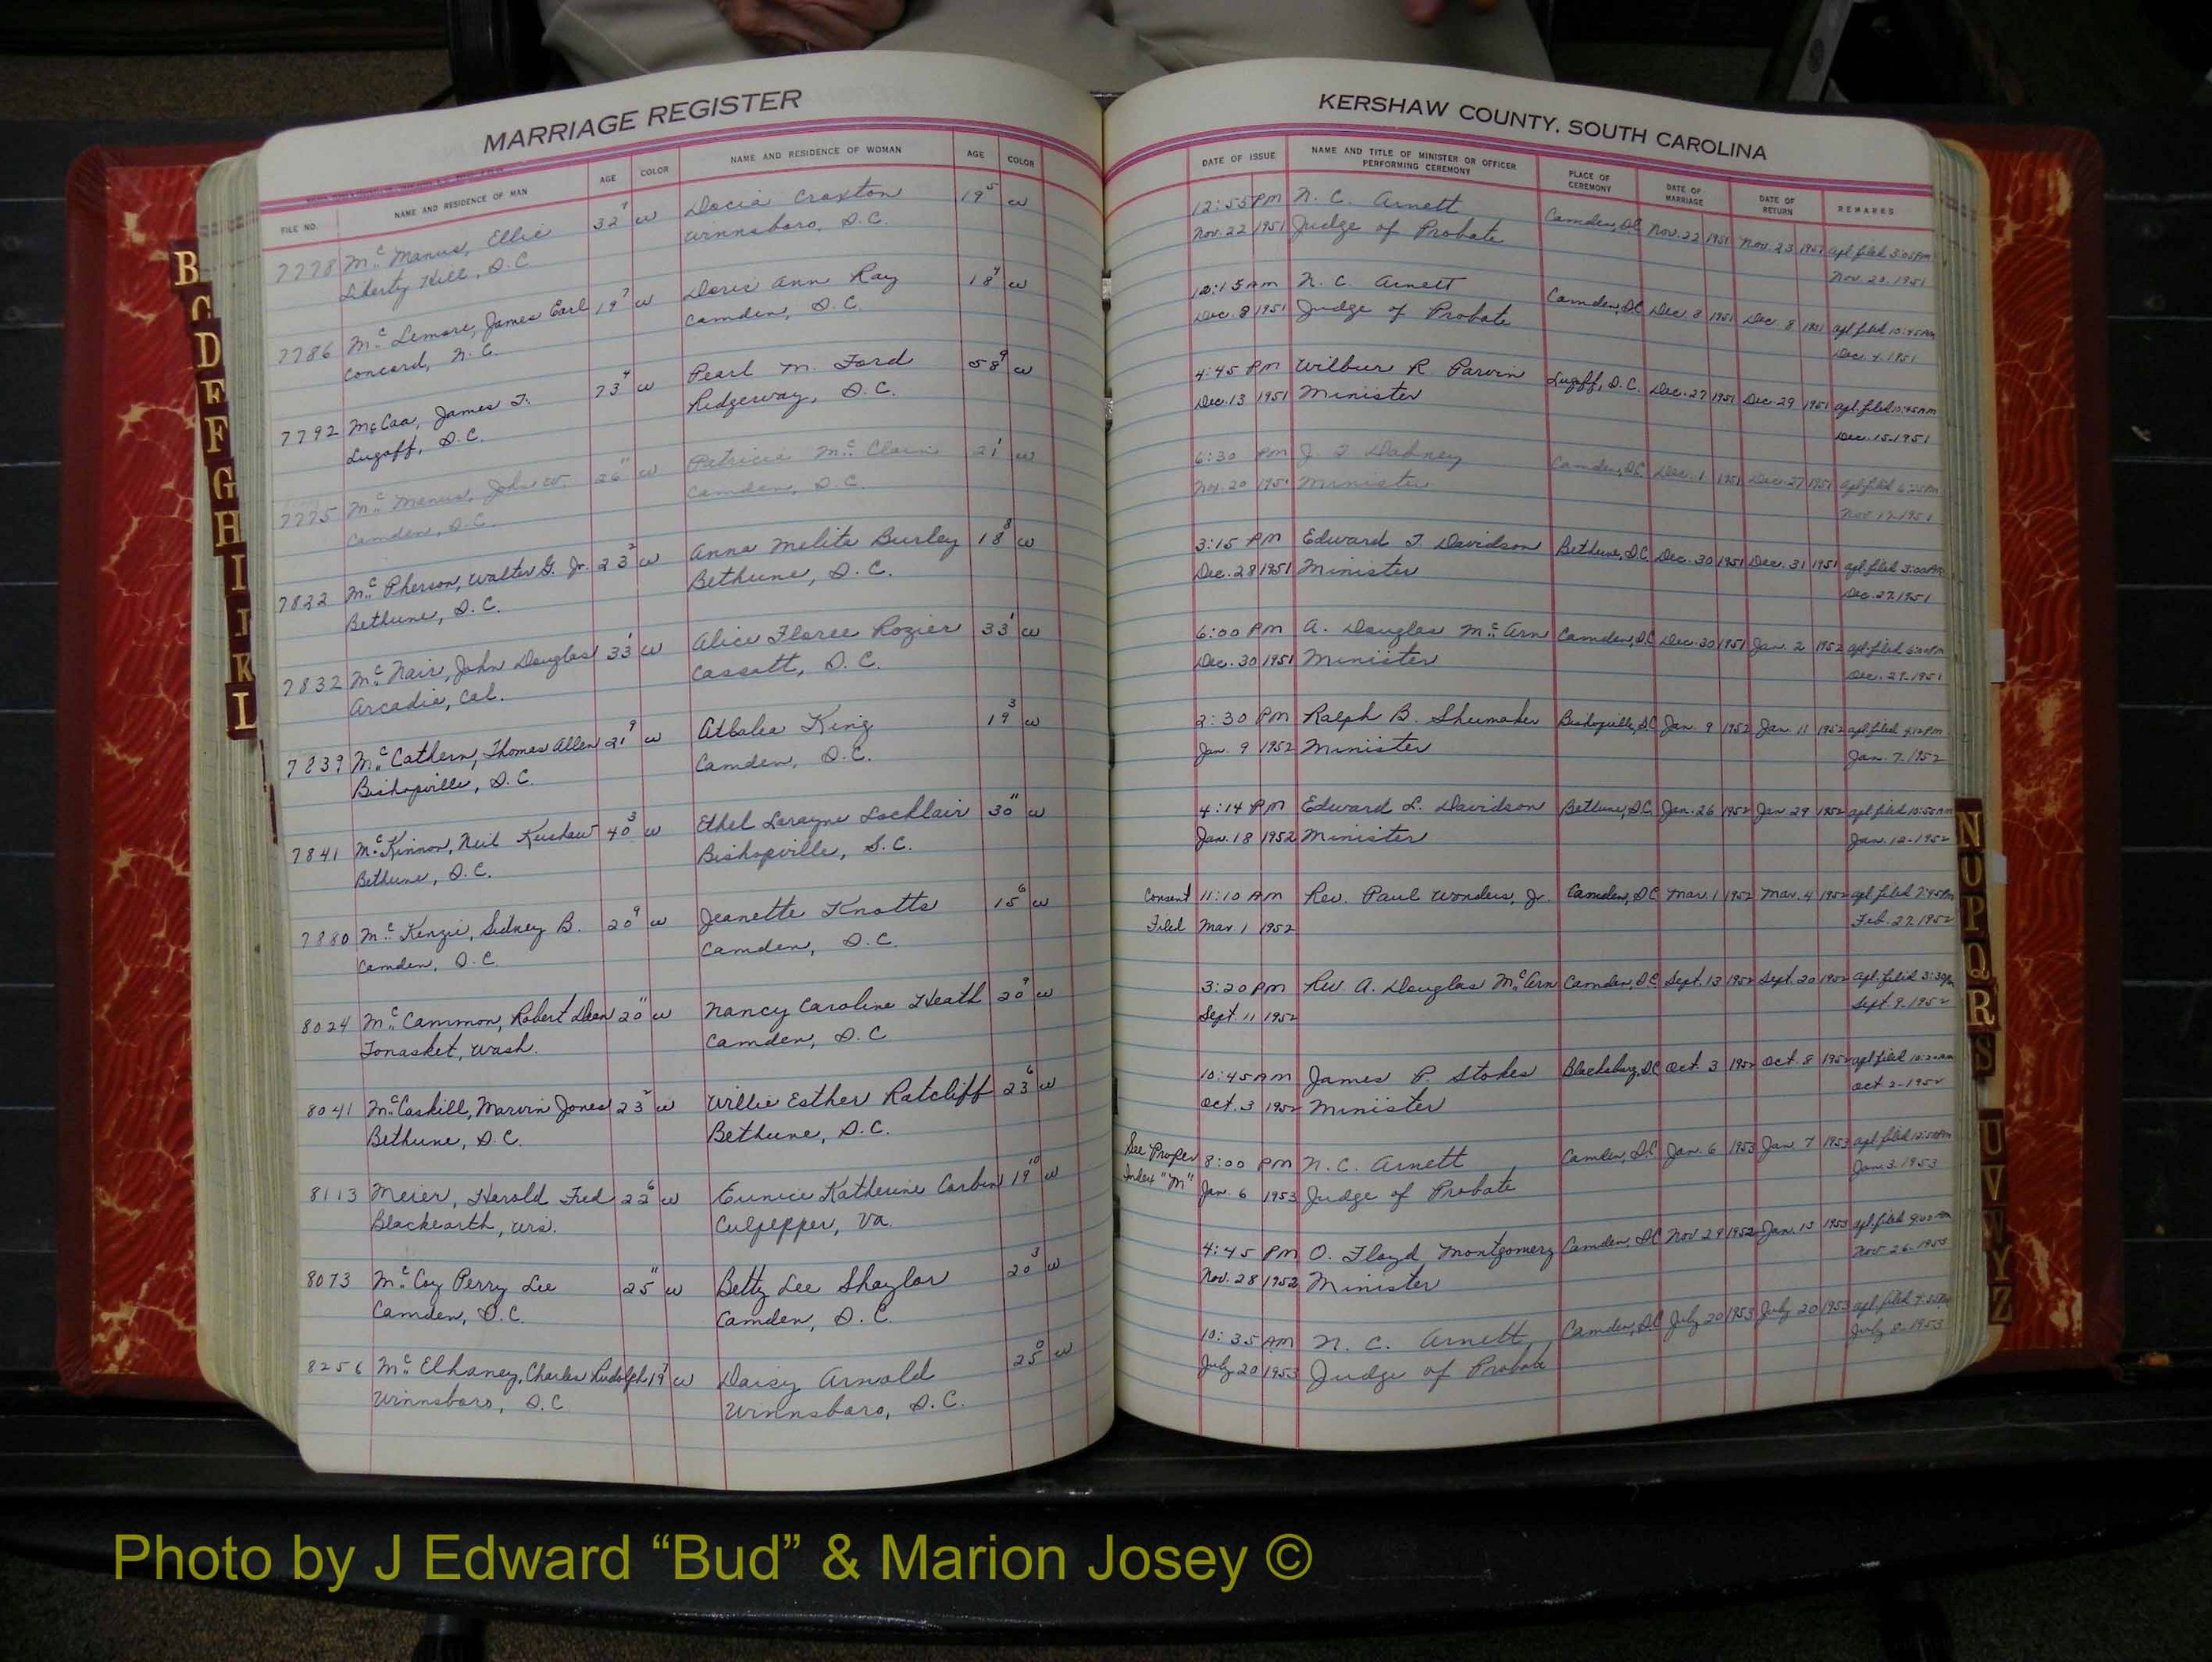 MARRIAGE REGISTER
FILE NO. NAME AND RESIDENCE OF MAN AGE COLOR NAME AND RESIDENCE OF WOMAN AGE COLOR
7778 Mc Manus, Ellie 32 7 w Docia Croxton 19 5 w
Liberty Hill, S.C Winnsboro, S.C.
7786 Mc Lemore, James Earl 19 7 w Doris Ann Ray 18 w
Concord, N.C. Camden, S.C.
7792 McCaa, James T. 73 4 w Pearl M. Ford 58 9 w
Lugoff, S.C. Ridgeway, S.C.
7775 Mc Manus, John W. 26 11 w Patricia Mc Clain 21 1 w
Camden, S.C. Camden, S.C
7822 Mc Pherson, Walter G. Jr. 23 2 w Anna Melita Burley 18 8 w
Bethune, S.C. Bethune, S.C.
7832 Mc Nair, John Douglas 33 1 w Alice Floree Rozier 33 1 w
Arcadia, Cal. Cassatt, S.C.
7839 Mc Cathern, Thomas Allen 21 9 w King 19 3 w
Bishopville, S.C. Camden, S.C.
7841 Mc Kinnon, Neil Kershaw 40 3 w Ethel Lorayne Locklair 30 11 w
Bethune, S.C. Bishopville, S.C.
7880 Mc Kenzie, Sidney B. 20 9 w Jeanette Knotts 15 6 w
Camden, S.C. Camden, S.C.
8024 Mc Cammon, Robert Dean 20 11 w Nancy Caroline Heath 20 9 w
Tonasket, Wash. Camden, S.C
8041 McCaskill, Marvin Jones 23 2 w Willie Esther Ratcliff 23 6 w
Bethune, S.C. Bethune, S.C.
8113 Meier, Harold Fred 22 6 w Eunice Katherine Corbin 19 10 w
Blackearth, Wis. Culpepper, Va.
8073 Mc Coy Perry Lee 25 11 w Betty Lee Shaylor 20 3 w
Camden, S.C. Camden, S.C.
8256 Mc Elhaney, Charles Rudolph 19 7 w Daisy Arnold 25 0 w
Winnsboro, S.C. Winnsboro, S.C.
KERSHAW COUNTY, SOUTH CAROLINA
DATE OF ISSUE NAME AND TITLE OF MINISTER OR OFFICER PERFORMING CEREMONY PLACE OF CEREMONY DATE OF MARRIAGE DATE OF RETURN REMARKS
12:55 PM N. C. Arnett Camden, SC Nov. 22 1951 Nov. 23 1951 apl. filed 3:05 PM
Nov. 22 1951 Judge of Probate Nov. 20, 1951
12:15 AM N. C. Arnett Camden, SC Dec. 8 1951 Dec. 8 1951 apl. filed 10:45 AM
Dec. 8 1951 Judge of Probate Dec. 4, 1951
4:45 PM Wilbur R. Parvin Lugoff, S.C. Dec. 27 1951 Dec. 29 1951 apl. filed
Dec. 13 1951 Minister Dec. 1951
6:30 PM J. T. Dabney Camden, SC Dec. 1 1951 Dec. 27 1951 apl. filed 6:25 PM
Nov. 20 1951 Minister Nov. 17-1951
3:15 PM Edward T. Davidson Bethune, SC Dec. 30 1951 Dec. 31 1951 apl. filed 3:00 PM
Dec. 28 1951 Minister Dec. 27, 1951
6:00 PM A. Douglas Mc Arn Camden, SC Dec. 30 1951 Jan. 2 1952 apl. filed
Dec. 30 1951 Minister Dec. 29-1951
2:30 PM Ralph B. Shumaker Bishopville, SC Jan. 9 1952 Jan. 11 1952 apl. filed
Jan. 9 1952 Minister Jan. 7-1952
4:14 PM Edward L. Davidson Bethune, SC Jan. 26 1952 Jan. 29 1952 apl. filed
Jan. 18 1952 Minister Jan. 12-1952
Consent 11:10 AM Rev. Paul Wonders, Jr. Camden, SC Mar. 1 1952 Mar. 4 1952 apl. filed 7:45 PM
Filed Mar. 1 1952 Feb. 27, 1952
3:20 PM Rev. A. Douglas Mc Arn Camden, SC Sept. 13 1952 Sept. 20 1952 apl. filed 3:30 PM
Sept. 11 1952 Sept. 9, 1952
10:45 AM James P. Stokes Blacksburg, SC Oct. 3 1952 Oct. 8 1952 apl. filed
Oct. 3 1952 Minister Oct 2-1952
See Proper 8:00 PM N. C. Arnett Camden, S.C Jan. 6 1953 Jan. 7 1953 apl. filed
Index "M" Jan. 6 1953 Judge of Probate Jan. 3, 1953
4:45 PM O. Floyd Montgomery Camden, SC Nov 29 1952 Jan. 13 1953 apl. filed
Nov. 28 1952 Minister Nov 26-1953
10:35 AM N. C. Arnett Camden, SC July 20 1953 July 20 1953 apl. filed
July 20 1953 Judge of Probate July 8-1953
B
C
D
E
F
G
H
I
J
K
L
N
O
P
Q
R
S
U
V
W
Y
Z
Photo by J Edward “Bud” & Marion Josey ©